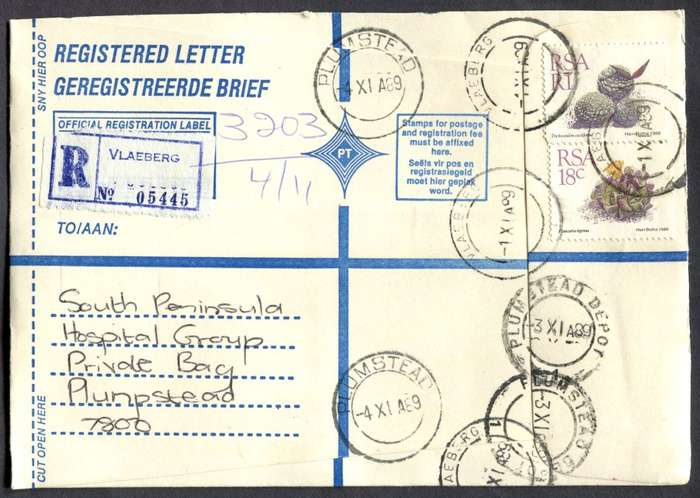 SNY HIER OOP
REGISTERED LETTER
GEREGISTREERDE BRIEF
OFFICIAL REGISTRATION LABEL
R
VLAEBERG
No 05445
3203
4/11
PT
Stamps for postage
and registration fee
must be affixed
here.
Seëls vir pos en
registrasiegeld
moet hier geplak
word.
TO/AAN:
South Peninsula
Hospital Group
Private Bag
Plumpstead
7800
CUT OPEN HERE
PLUMSTEAD
-4 XI A89
VLAEBERG
-1 XI A89
RSA
R1
RSA
18c
-1 XI A89
VLAEBERG
-1 XI A89
PLUMSTEAD DEPOT
-3 XI A89
PLUMSTEAD
-4 XI A89
PLUMSTEAD
-3 XI A89
VLAEBERG